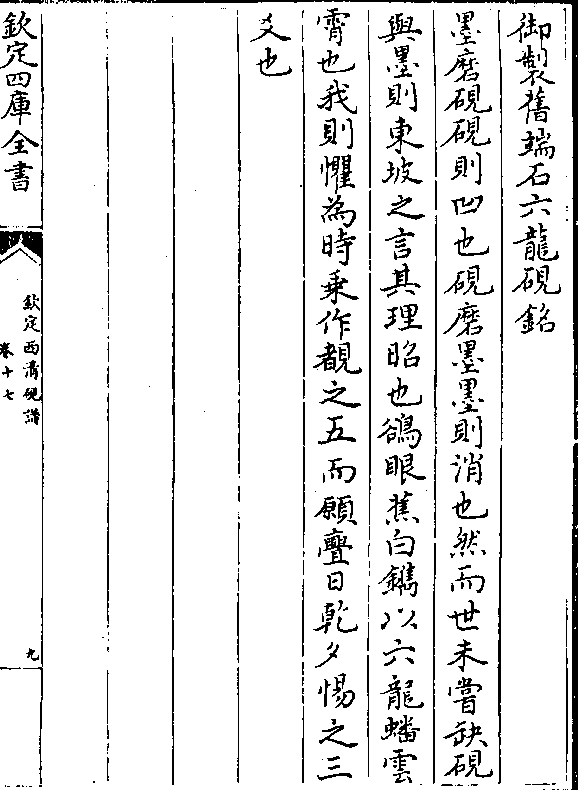 御製舊端石六龍硯銘
墨磨硯硯則凹也硯磨墨墨則消也然而世未嘗缺硯
與墨則東坡之言其理昭也鴝眼蕉白鐫以六龍蟠雲
霄也我則懼為時乗作覩之五而願亹日乾夕惕之三
爻也
欽定四庫全書
欽定西清硯譜
卷十七
九